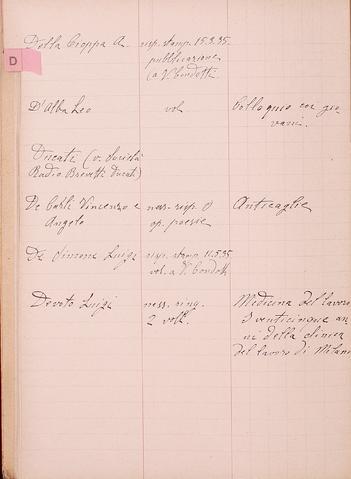 D
Della Cioppa A. risp. stamp. 15.3.35.
pubblicazione
(a V. Condotti
D'Alba Leo vol. Colloquio coi gio
vani.
Ducati (v. Società
Radio Brevetti Ducati)
De Carli Vincenzo e ness. risp. Anticaglie
Angelo op. poesie
De Simone Luigi risp. stamp. 11.5.35
vol. a V. Condotti
Devoto Luigi mess. ring. Medicina del lavoro
2 voll. I venticinque an
ni della clinica
del lavoro di Milano